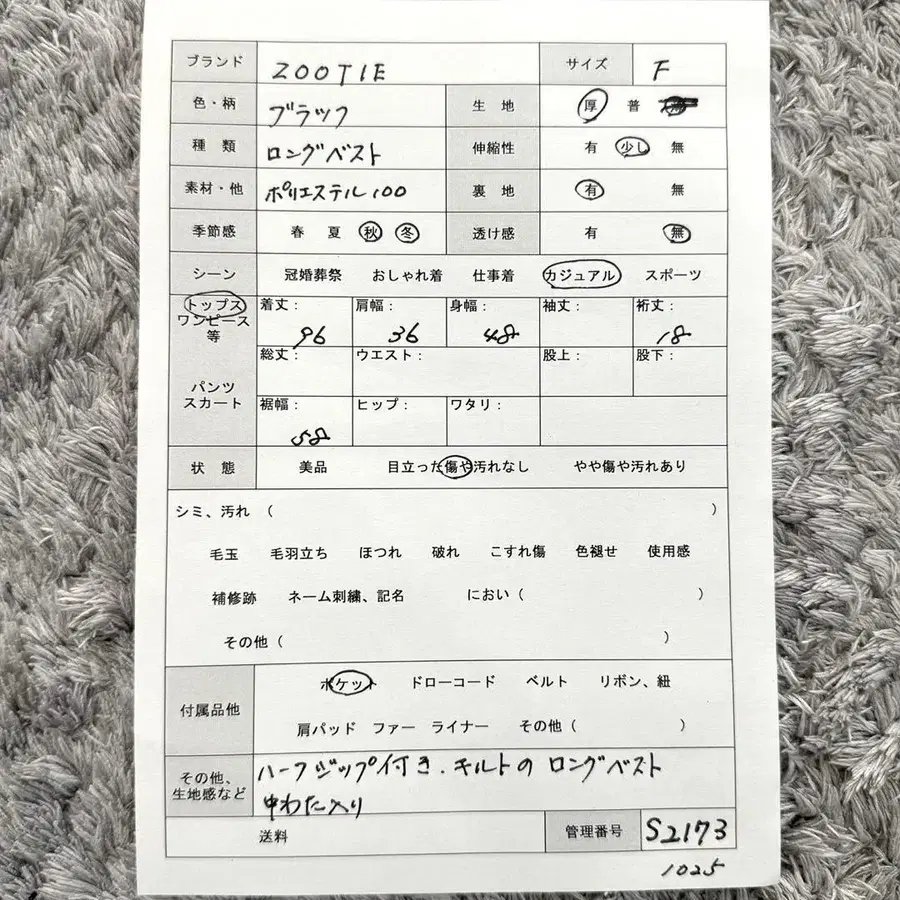 ブランド ZOOTIE サイズ F
色・柄 ブラック 生 地 厚 普
種 類 ロングベスト 伸縮性 有 少し 無
素材・他 ポリエステル100 裏 地 有 無
季節感 春 夏 秋 冬 透け感 有 無
シーン 冠婚葬祭 おしゃれ着 仕事着 カジュアル スポーツ
トップス
ワンピース
等
着丈: 肩幅: 身幅: 袖丈: 裄丈:
96 36 48 18
パンツ
スカート
総丈: ウエスト: 股上: 股下:
裾幅: ヒップ: ワタリ:
58
状 態 美品 目立った傷や汚れなし やや傷や汚れあり
シミ、汚れ ( )
毛玉 毛羽立ち ほつれ 破れ こすれ傷 色褪せ 使用感
補修跡 ネーム刺繍、記名 におい ( )
その他 ( )
付属品他 ポケット ドローコード ベルト リボン、紐
肩パッド ファー ライナー その他 ( )
その他、
生地感など
ハーフジップ付き.キルトの ロングベスト
中わた入り
送料 管理番号 S2173
1025